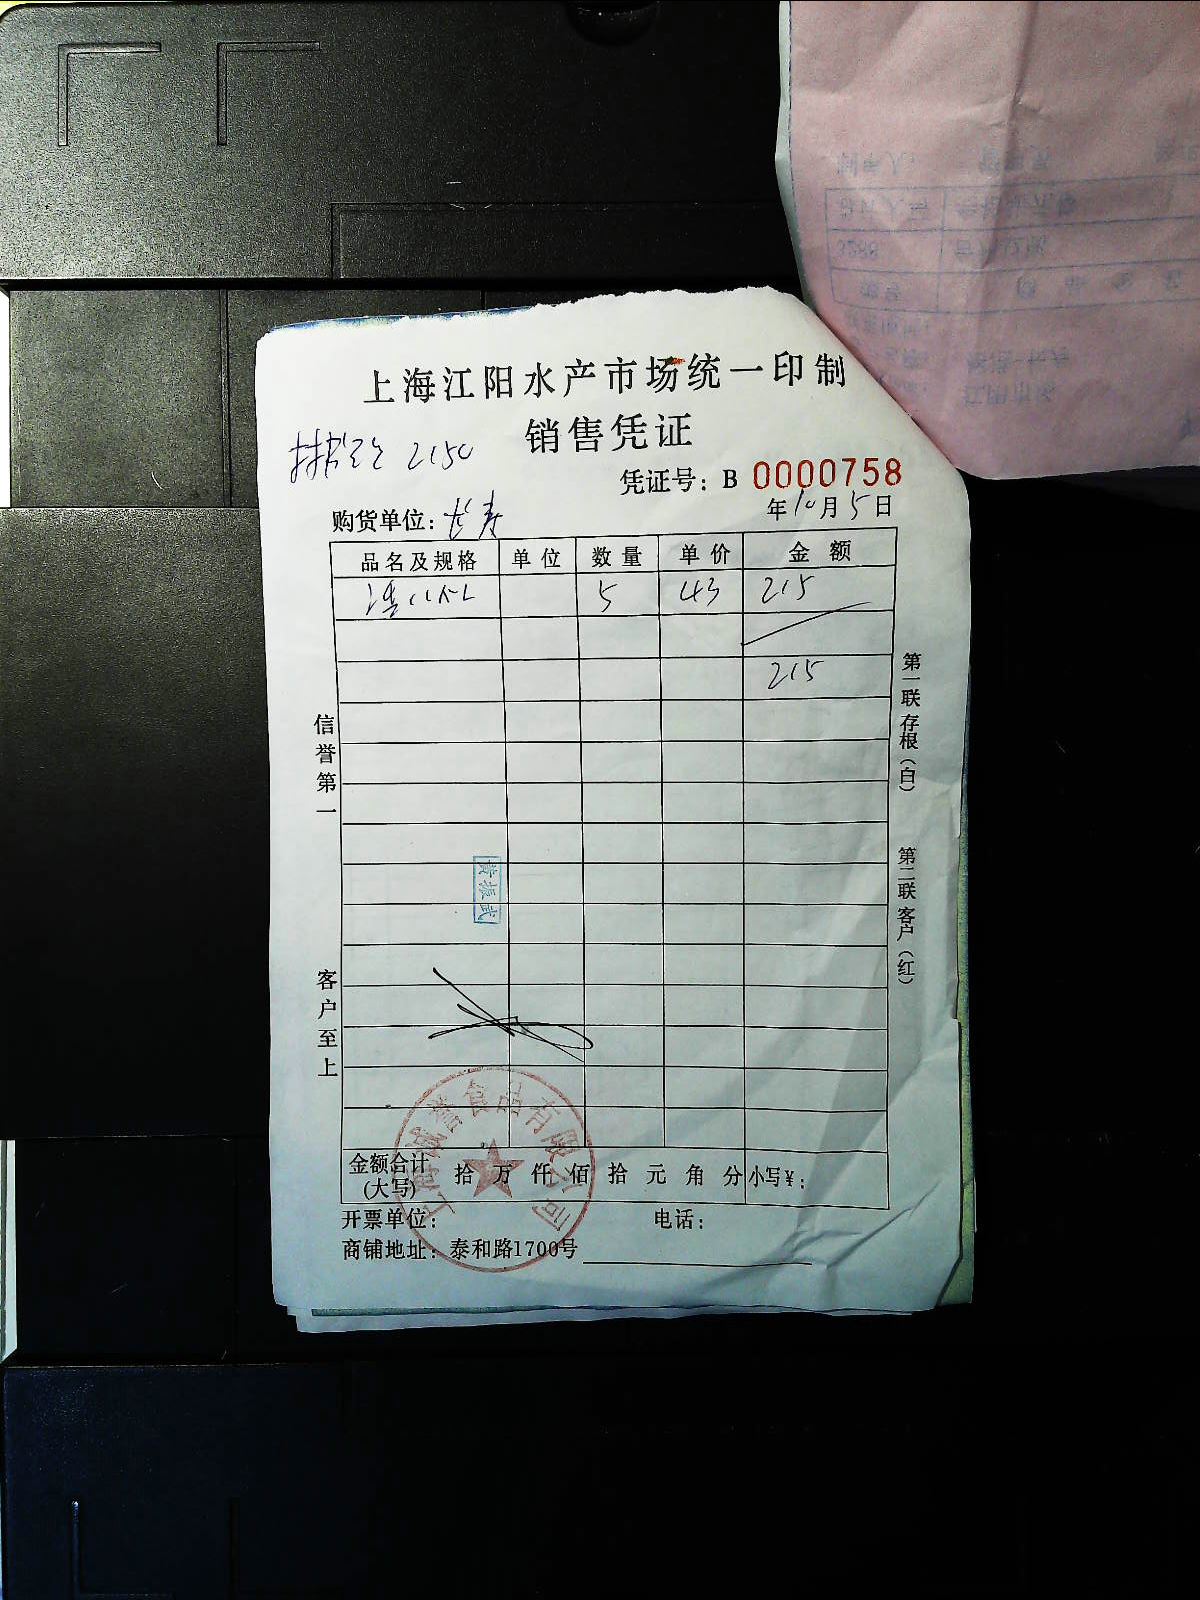 上海江阳水产市场统一印制
销售凭证
2150
凭证号：B 0000758
购货单位：长寿
年10月5日
品名及规格 单位 数量 单价 金额
5 43 215
215
信誉第一
客户至上
第一联存根（白）
第二联客户（红）
黄振武
上海诚誉食品有限公司
金额合计（大写） 拾 万 仟 佰 拾 元 角 分 小写¥：
开票单位： 电话：
商铺地址：泰和路1700号